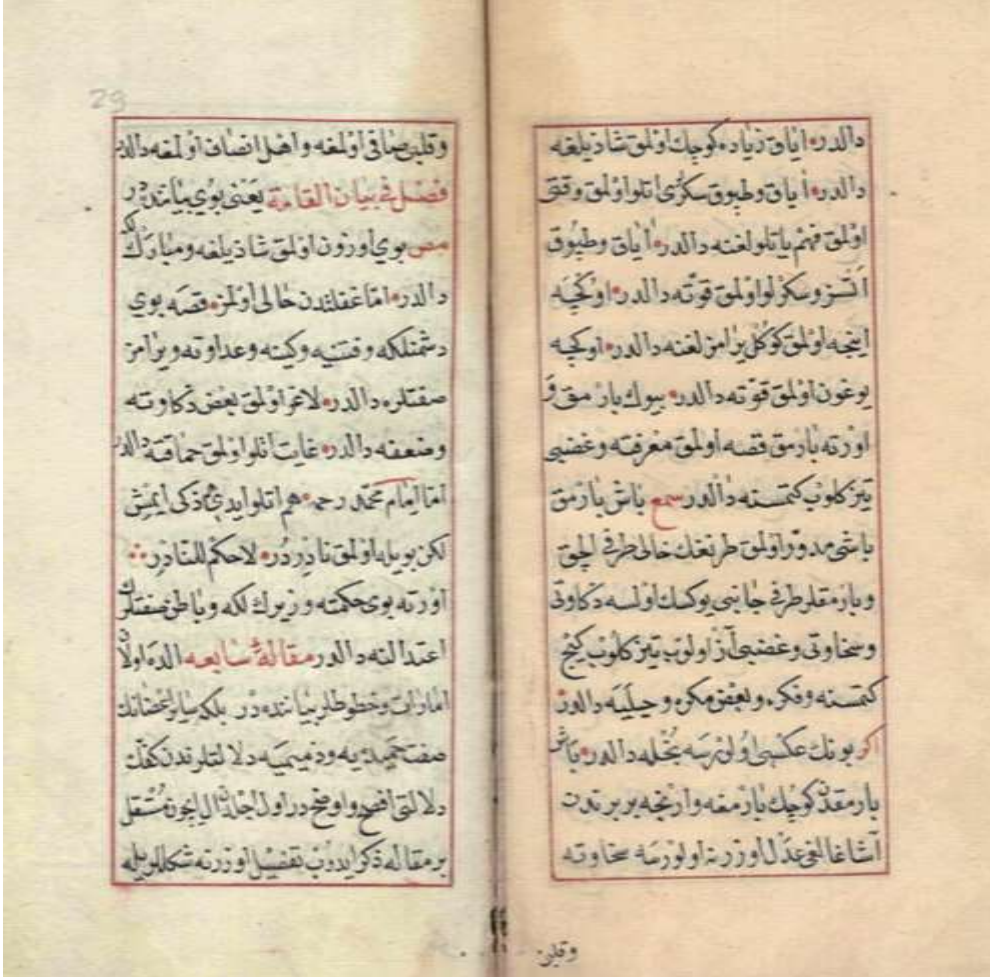 دالدر ایاق زیاده کوچك اولمق شاذیلغه
دالدر ایاق وطپوق سکزی اتلو اولمق وقتی
اولمق فهم یاتلولغنه دالدر ایاق وطپوق
اتسز وسکزلو اولمق قوته دالدر اوکجه
اینجه اولمق کوکل یرامزلغنه دالدر اوکجه
یوغون اولمق قوته دالدر بیوك بارمق و
اورته بارمق قصه اولمق معرفته وغضبی
تیز کلوب کتمسنه دالدر سمع باش بارمق
باشی مدور اولمق طرنغك خالی طرفی الچق
وبارمقلر طرفی جانبی یوکسك اولسه ذکاوتی
وسخاوتی وغضبی آز اولوب تیز کلوب کیج
کتمسنه وفکره وبعض مکره وحیلیه دالدر
اکر بونك عکسی اولورسه بخله دالدر باش
بارمقدن کوچك بارمغه وارنجه بربرندن
آشاغالغی عدل اوزرنه اولورسه سخاوته
وقلبن
29
وقلبی صافی اولمغه واهل انصاف اولمغه دالدر
فصل فی بیان القامة یعنی بوی بیاننده در
مص بوی اوزون اولمق شاذیلغه ومبارك لکه
دالدر اما غفلتدن خالی اولمز قصه بوی
دشمنلکه وفتنیه وکینه وعداوته ویرامز
صفتلره دالدر لاغر اولمق بعض ذکاوته
وضعفه دالدر غایت اتلو اولمق حماقته دالدر
اما امام محمد رحمه هم اتلو ایدی هم ذکی ایمش
لکن بویله اولمق نادردر لاحکم للنادر
اورته بوی حکمته وزیرك لکه وباطن صفتلرك
اعتدالنه دالدر مقالۀ سابعه الده اولان
امارات وخطوطلر بیاننده در بلکه سایر اعضانك
صفت حمیدیه وذمیمیه دلالتلرندن کفك
دلالتی افصح واوضحدر اول اجلدن ال ایچون مستقل
بر مقاله ذکر ایدوب تفصیل اوزرنه شکللریله